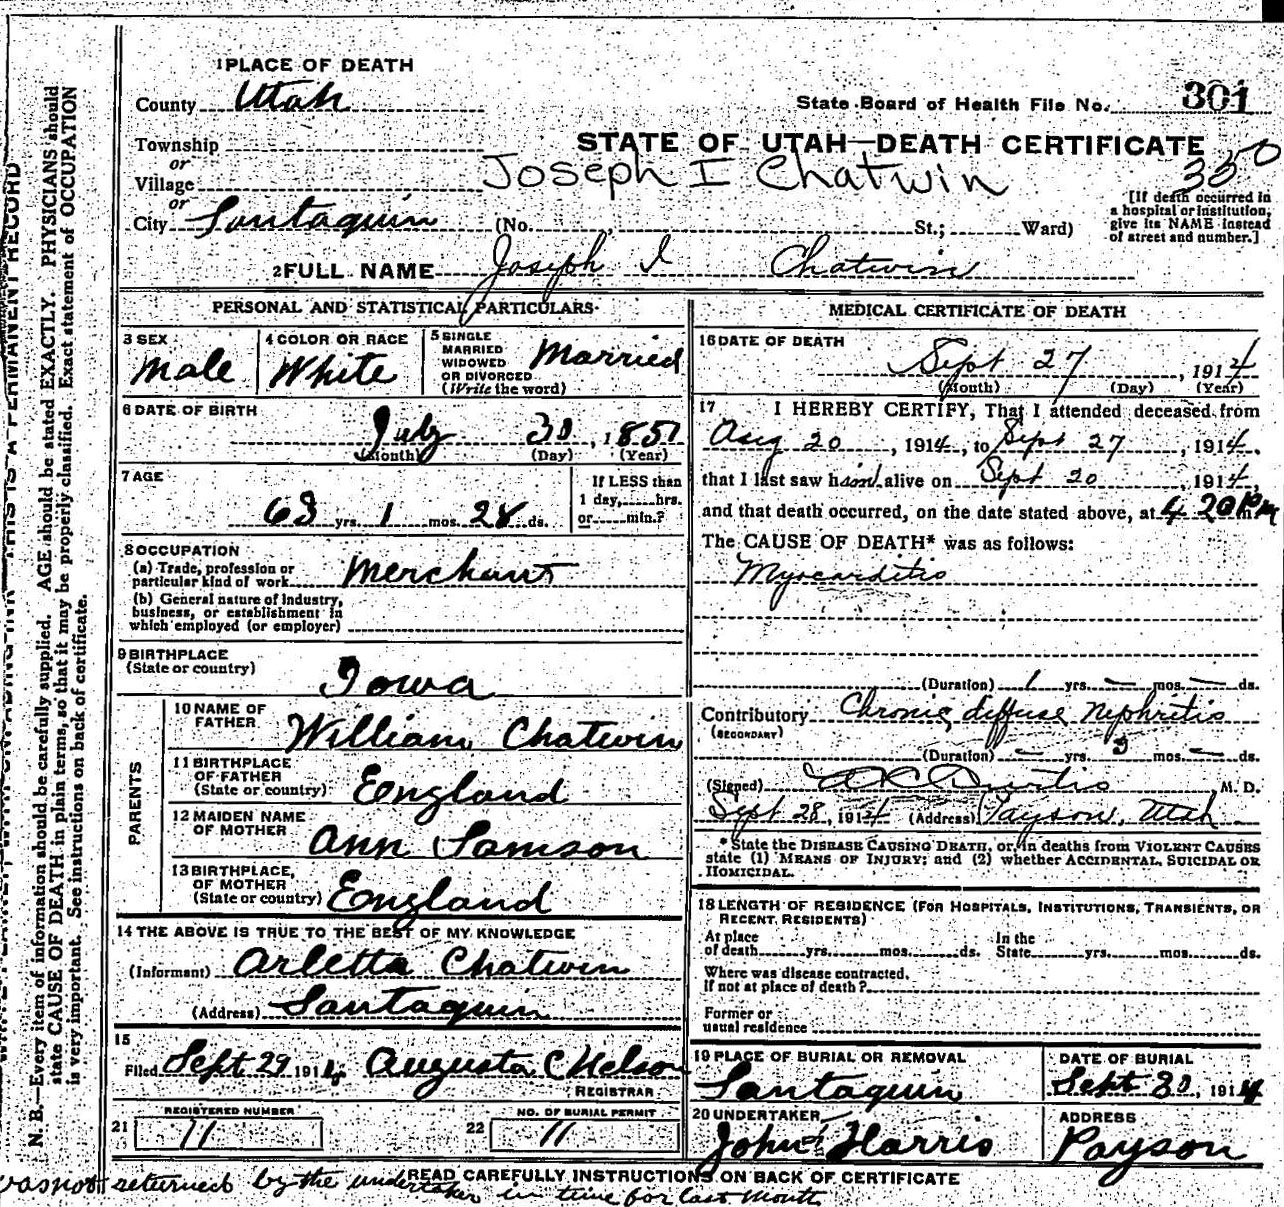 1 PLACE OF DEATH
County Utah
State Board of Health File No. 301
Township
or
Village
or
City Santaquin (No. , St.; Ward)
STATE OF UTAH—DEATH CERTIFICATE
Joseph I Chatwin
350
[If death occurred in
a hospital or institution,
give its NAME instead
of street and number.]
2 FULL NAME Joseph I Chatwin
PERSONAL AND STATISTICAL PARTICULARS
3 SEX
Male
4 COLOR OR RACE
White
5 SINGLE
MARRIED
WIDOWED
OR DIVORCED
(Write the word)
Married
6 DATE OF BIRTH
July 30, 1851
(Month) (Day) (Year)
7 AGE
63 yrs. 1 mos. 28 ds.
If LESS than
1 day, hrs.
or min.?
8 OCCUPATION
(a) Trade, profession or
particular kind of work Merchant
(b) General nature of Industry,
business, or establishment in
which employed (or employer)
9 BIRTHPLACE
(State or country)
Iowa
PARENTS
10 NAME OF
FATHER
William Chatwin
11 BIRTHPLACE
OF FATHER
(State or country) England
12 MAIDEN NAME
OF MOTHER
Ann Samson
13 BIRTHPLACE,
OF MOTHER
(State or country) England
14 THE ABOVE IS TRUE TO THE BEST OF MY KNOWLEDGE
(Informant) Arletta Chatwin
(Address) Santaquin
15
Filed Sept 29 1914 Augusta C Nelson
REGISTRAR
21 REGISTERED NUMBER
11
22 NO. OF BURIAL PERMIT
11
MEDICAL CERTIFICATE OF DEATH
16 DATE OF DEATH
Sept 27, 1914
(Month) (Day) (Year)
17 I HEREBY CERTIFY, That I attended deceased from
Aug 20, 1914, to Sept 27, 1914,
that I last saw him alive on Sept 20, 1914,
and that death occurred, on the date stated above, at 4 20 P m
The CAUSE OF DEATH* was as follows:
Myocarditis
(Duration) 1 yrs. — mos. — ds.
Contributory Chronic diffuse Nephritis
(SECONDARY)
(Duration) — yrs. 3 mos. — ds.
(Signed) Curtis, M. D.
Sept 28, 1914 (Address) Payson, Utah
* State the DISEASE CAUSING DEATH, or, in deaths from VIOLENT CAUSES
state (1) MEANS OF INJURY; and (2) whether ACCIDENTAL, SUICIDAL OR
HOMICIDAL.
18 LENGTH OF RESIDENCE (FOR HOSPITALS, INSTITUTIONS, TRANSIENTS, OR
RECENT RESIDENTS)
At place
of death yrs. mos. ds. In the
State yrs. mos. ds.
Where was disease contracted,
If not at place of death?
Former or
usual residence
19 PLACE OF BURIAL OR REMOVAL
Santaquin
DATE OF BURIAL
Sept 30, 1914
20 UNDERTAKER
John Harris
ADDRESS
Payson
READ CAREFULLY INSTRUCTIONS ON BACK OF CERTIFICATE
was not returned by the undertaker in time for last month
THIS IS A PERMANENT RECORD
N. B.—Every item of information should be carefully supplied. AGE should be stated EXACTLY. PHYSICIANS should
state CAUSE OF DEATH in plain terms, so that it may be properly classified. Exact statement of OCCUPATION
is very important. See instructions on back of certificate.